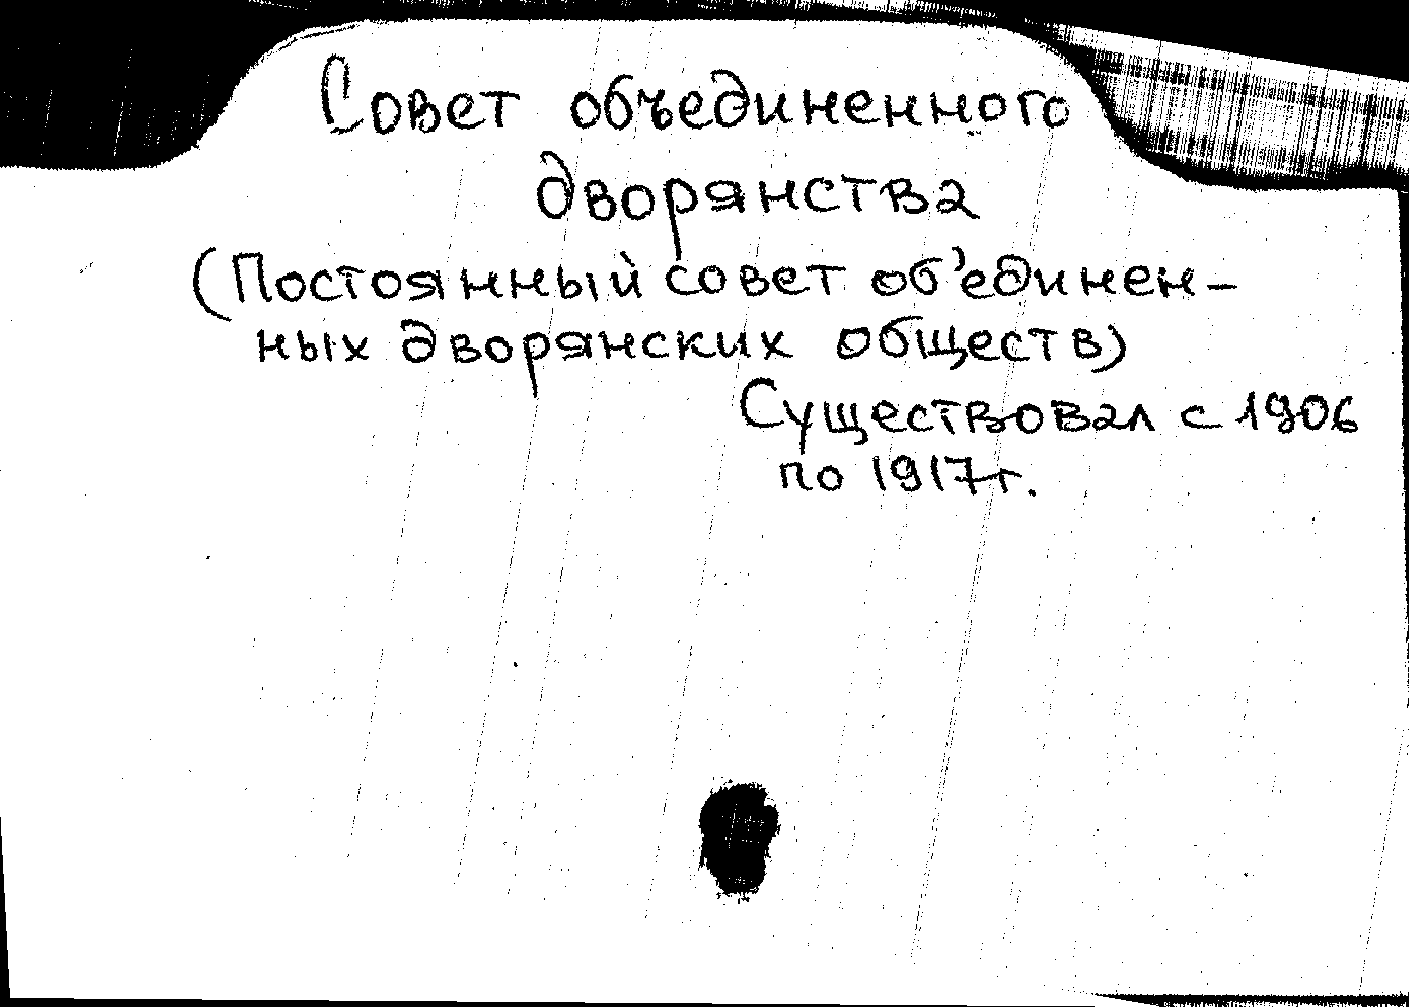 Совет объединенного
дворянства
(Постоянный совет об'единен-
ных дворянских обществ)
Существовал с 1906
по 1917г.